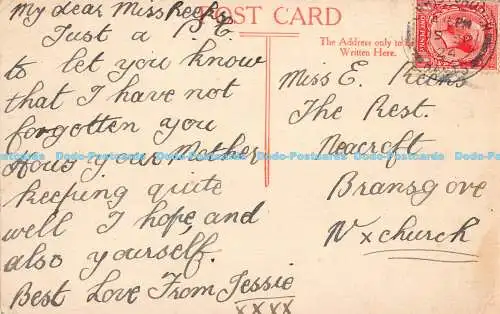 My dear Miss Reeks
Just a P.C.
to let you know
that I have not
forgotten you
How's your Mother
keeping quite
well I hope, and
also yourself.
Best Love From Jessie
xxxx
POST CARD
The Address only to be
Written Here.
Miss E. Reeks
The Rest.
Neacroft
Bransgove
N x church
Dodo-Postcards Dodo-Postcards Dodo-Postcards Dodo-Postcards Dodo-Postcards